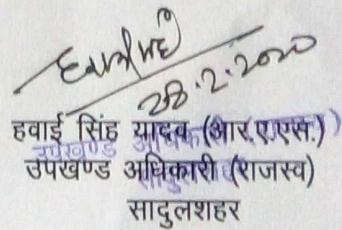 28.2.2020
हवाई सिंह यादव (आर.ए.एस.)
उपखण्ड अधिकारी (राजस्व)
सादुलशहर